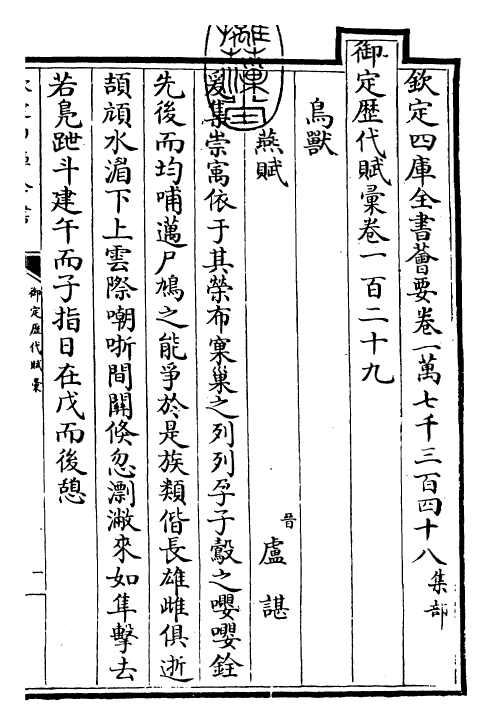 欽定四庫全書薈要卷一萬七千三百四十八集部
御定歴代賦彙卷一百二十九
鳥獸
燕賦
晉盧諶
爰集崇寓依于其榮布窠巢之列列孕子鷇之嚶嚶銓
先後而均哺邁尸鳩之能爭於是族類偕長雄雌俱逝
頡頏水湄下上雲際嘲哳間關倏忽漂潎來如隼擊去
若鳬跇斗建午而子指日在戊而後憩
御定歴代賦彙
一